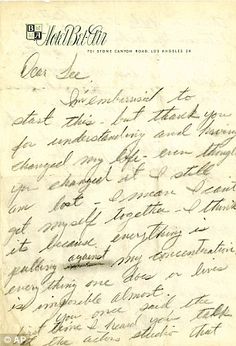 B
A
Hotel Bel-Air
701 STONE CANYON ROAD, LOS ANGELES 24
Dear Lee,
I'm embarrised to
start this - but thank you
for understanding and having
changed my life - even though
you changed it I still
am lost - I mean I can't
get myself together - I think
it because everything is
pulling against my concentration
everything one does or lives
is impossible almost.
You once said, the
first time I heard you talk
at the actors studio that
AP